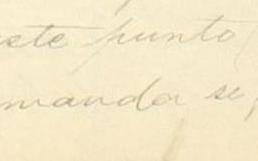 este punto (
manda se